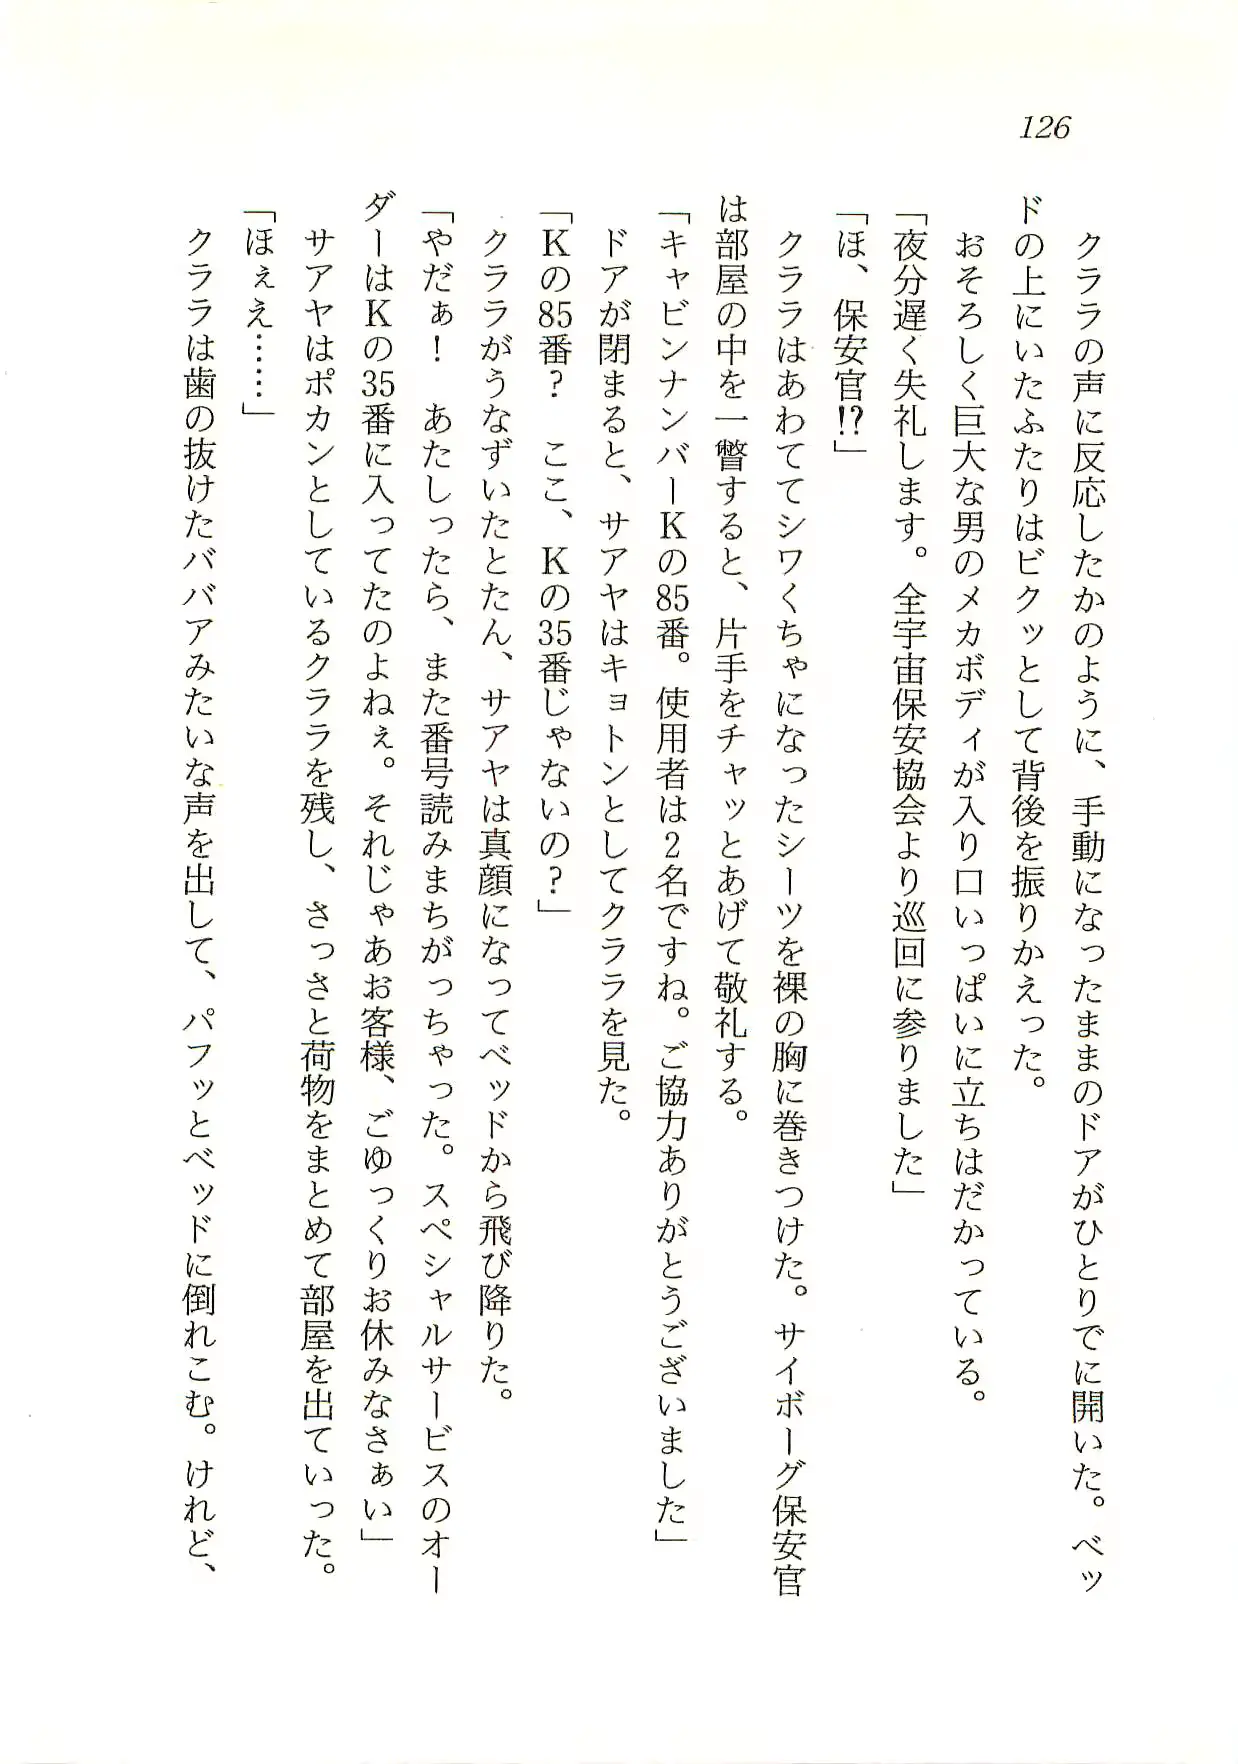 126
　クララの声に反応したかのように、手動になったままのドアがひとりでに開いた。ベッ
ドの上にいたふたりはビクッとして背後を振りかえった。
　おそろしく巨大な男のメカボディが入り口いっぱいに立ちはだかっている。
「夜分遅く失礼します。全宇宙保安協会より巡回に参りました」
「ほ、保安官!?」
　クララはあわててシワくちゃになったシーツを裸の胸に巻きつけた。サイボーグ保安官
は部屋の中を一瞥すると、片手をチャッとあげて敬礼する。
「キャビンナンバーＫの85番。使用者は２名ですね。ご協力ありがとうございました」
　ドアが閉まると、サアヤはキョトンとしてクララを見た。
「Ｋの85番？　ここ、Ｋの35番じゃないの？」
　クララがうなずいたとたん、サアヤは真顔になってベッドから飛び降りた。
「やだぁ！　あたしったら、また番号読みまちがっちゃった。スペシャルサービスのオー
ダーはＫの35番に入ってたのよねぇ。それじゃあお客様、ごゆっくりお休みなさぁい」
　サアヤはポカンとしているクララを残し、さっさと荷物をまとめて部屋を出ていった。
「ほぇえ……」
　クララは歯の抜けたババアみたいな声を出して、パフッとベッドに倒れこむ。けれど、